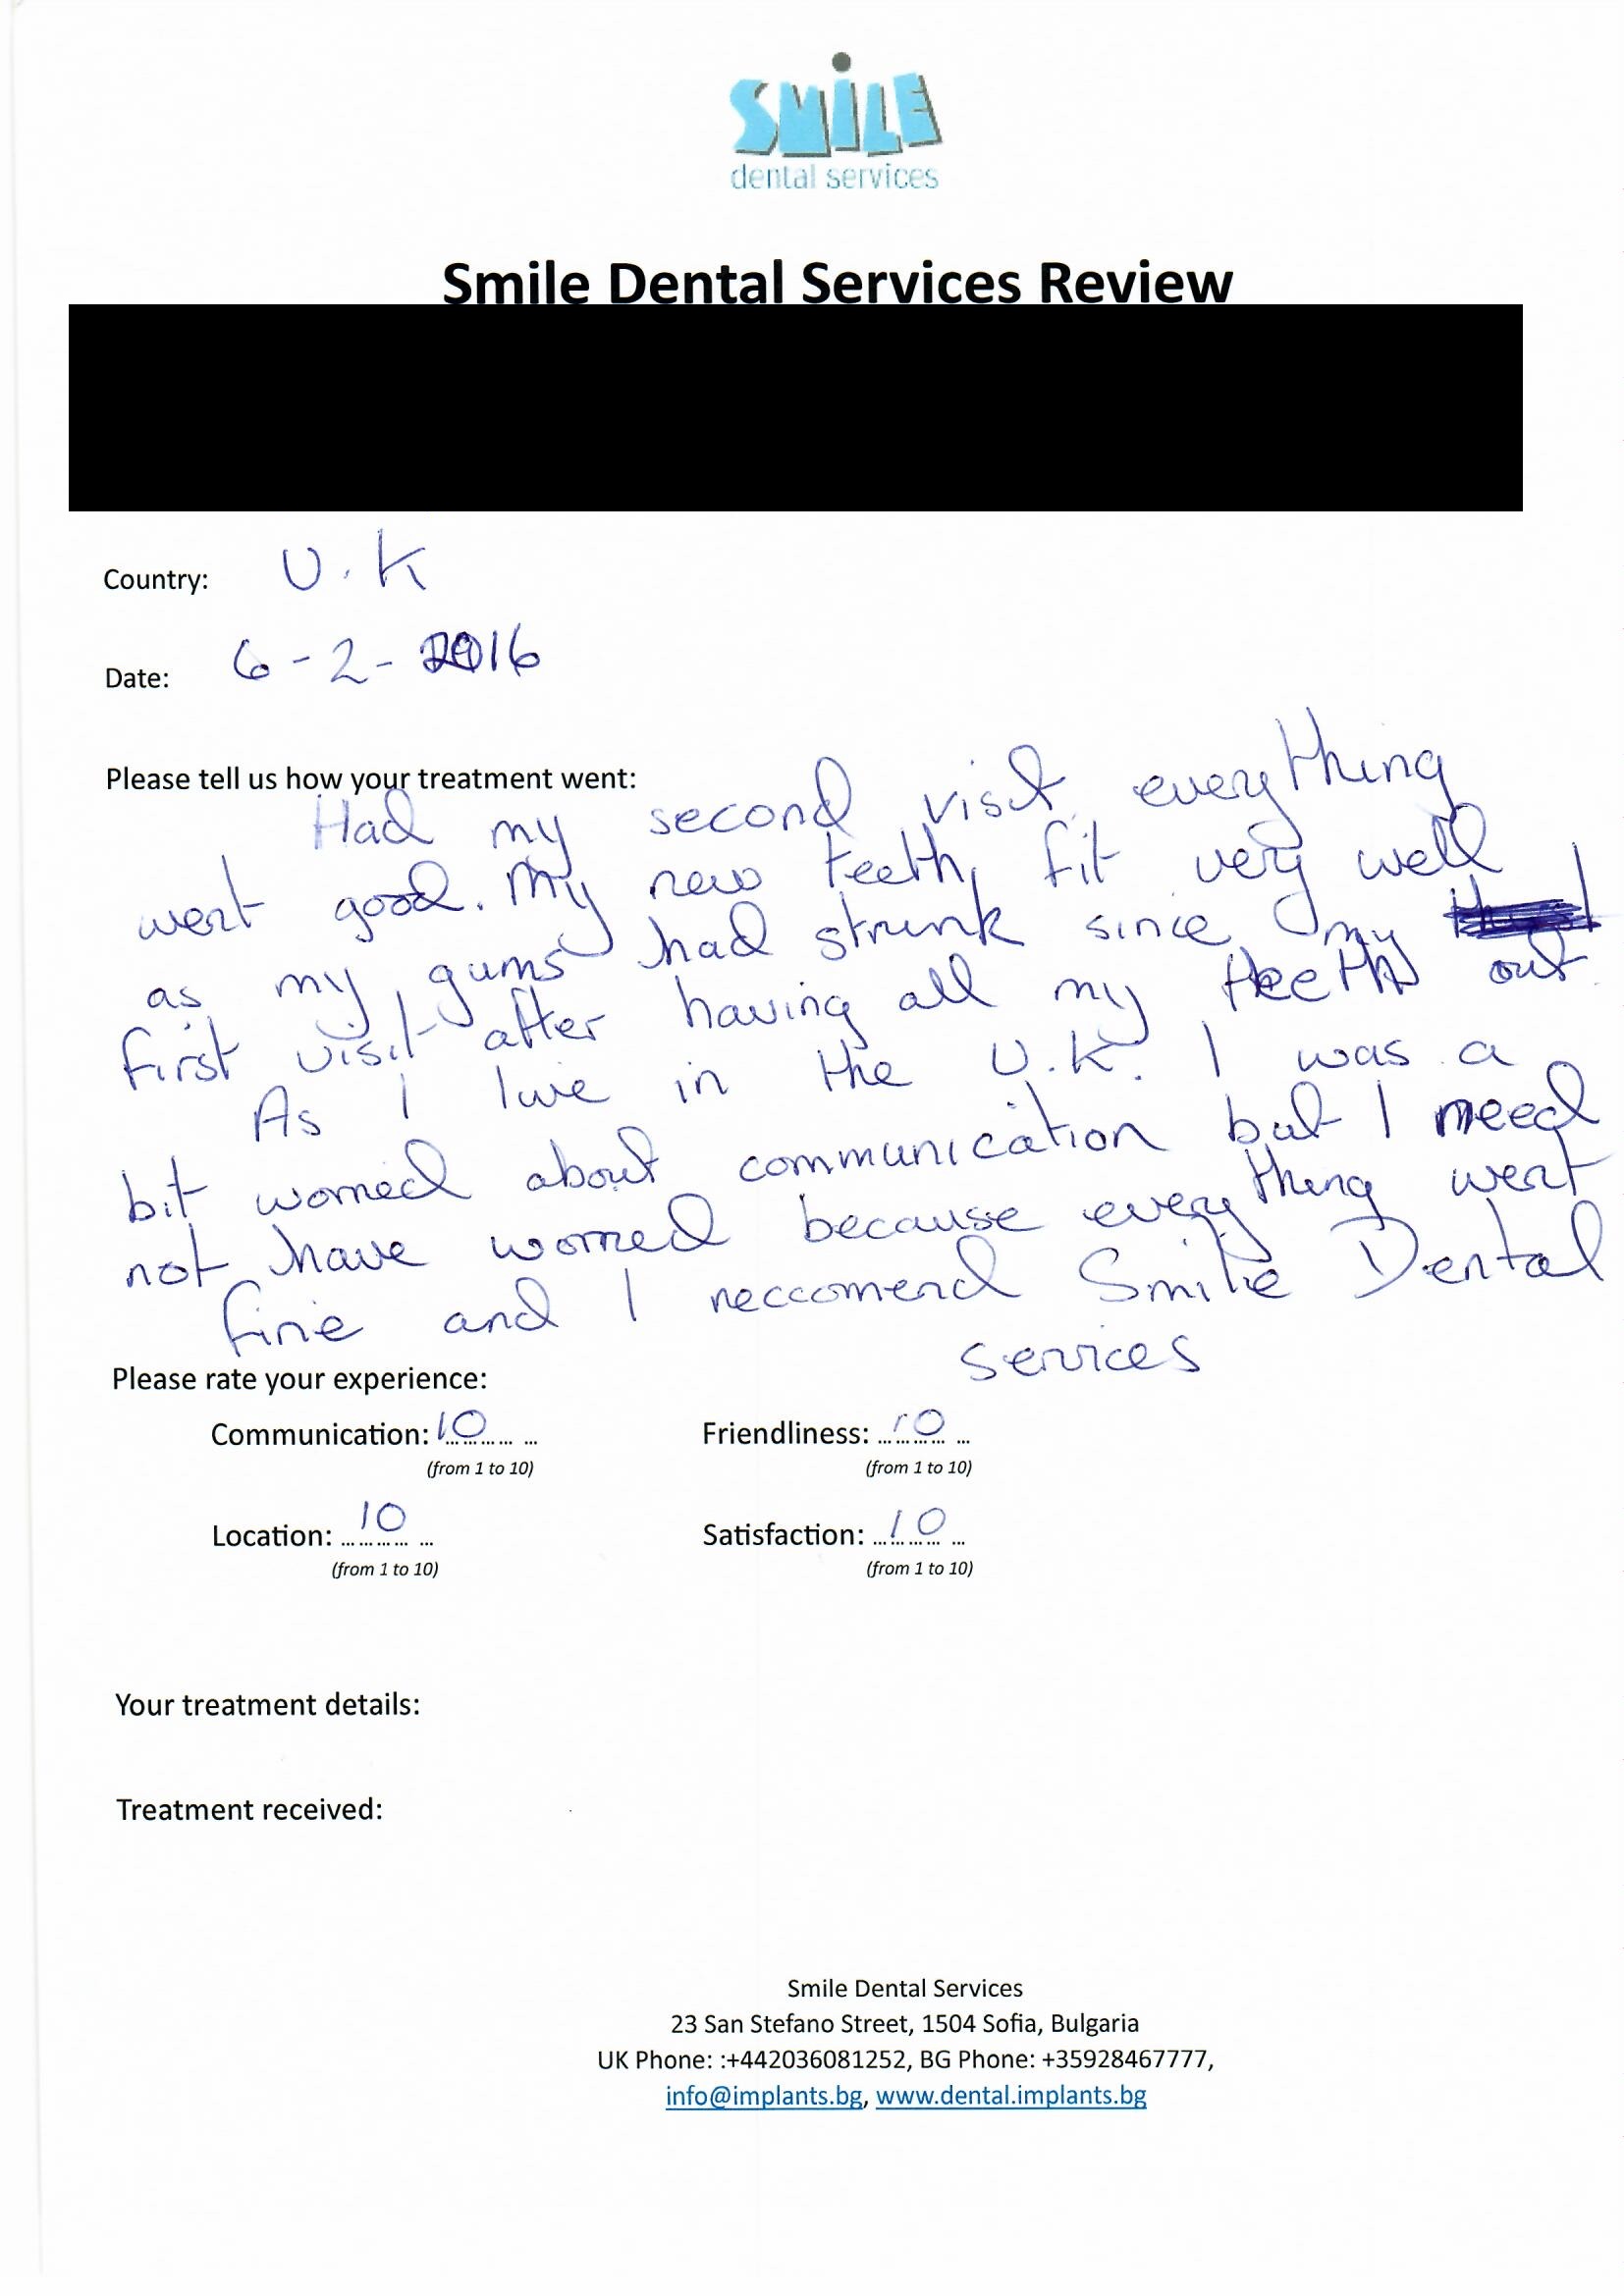 SMiLE
dental services
Smile Dental Services Review
Country: U.K
Date: 6-2-2016
Please tell us how your treatment went:
Had my second visit everything
went good. My new teeth fit very well
as my gums had strunk since my
first visit after having all my teeth out.
As I live in the U.K. I was a
bit worried about communication but I need
not have worried because everything went
fine and I reccomend Smile Dental
services
Please rate your experience:
Communication: 10 Friendliness: 10
(from 1 to 10) (from 1 to 10)
Location: 10 Satisfaction: 10
(from 1 to 10) (from 1 to 10)
Your treatment details:
Treatment received:
Smile Dental Services
23 San Stefano Street, 1504 Sofia, Bulgaria
UK Phone: :+442036081252, BG Phone: +35928467777,
info@implants.bg, www.dental.implants.bg